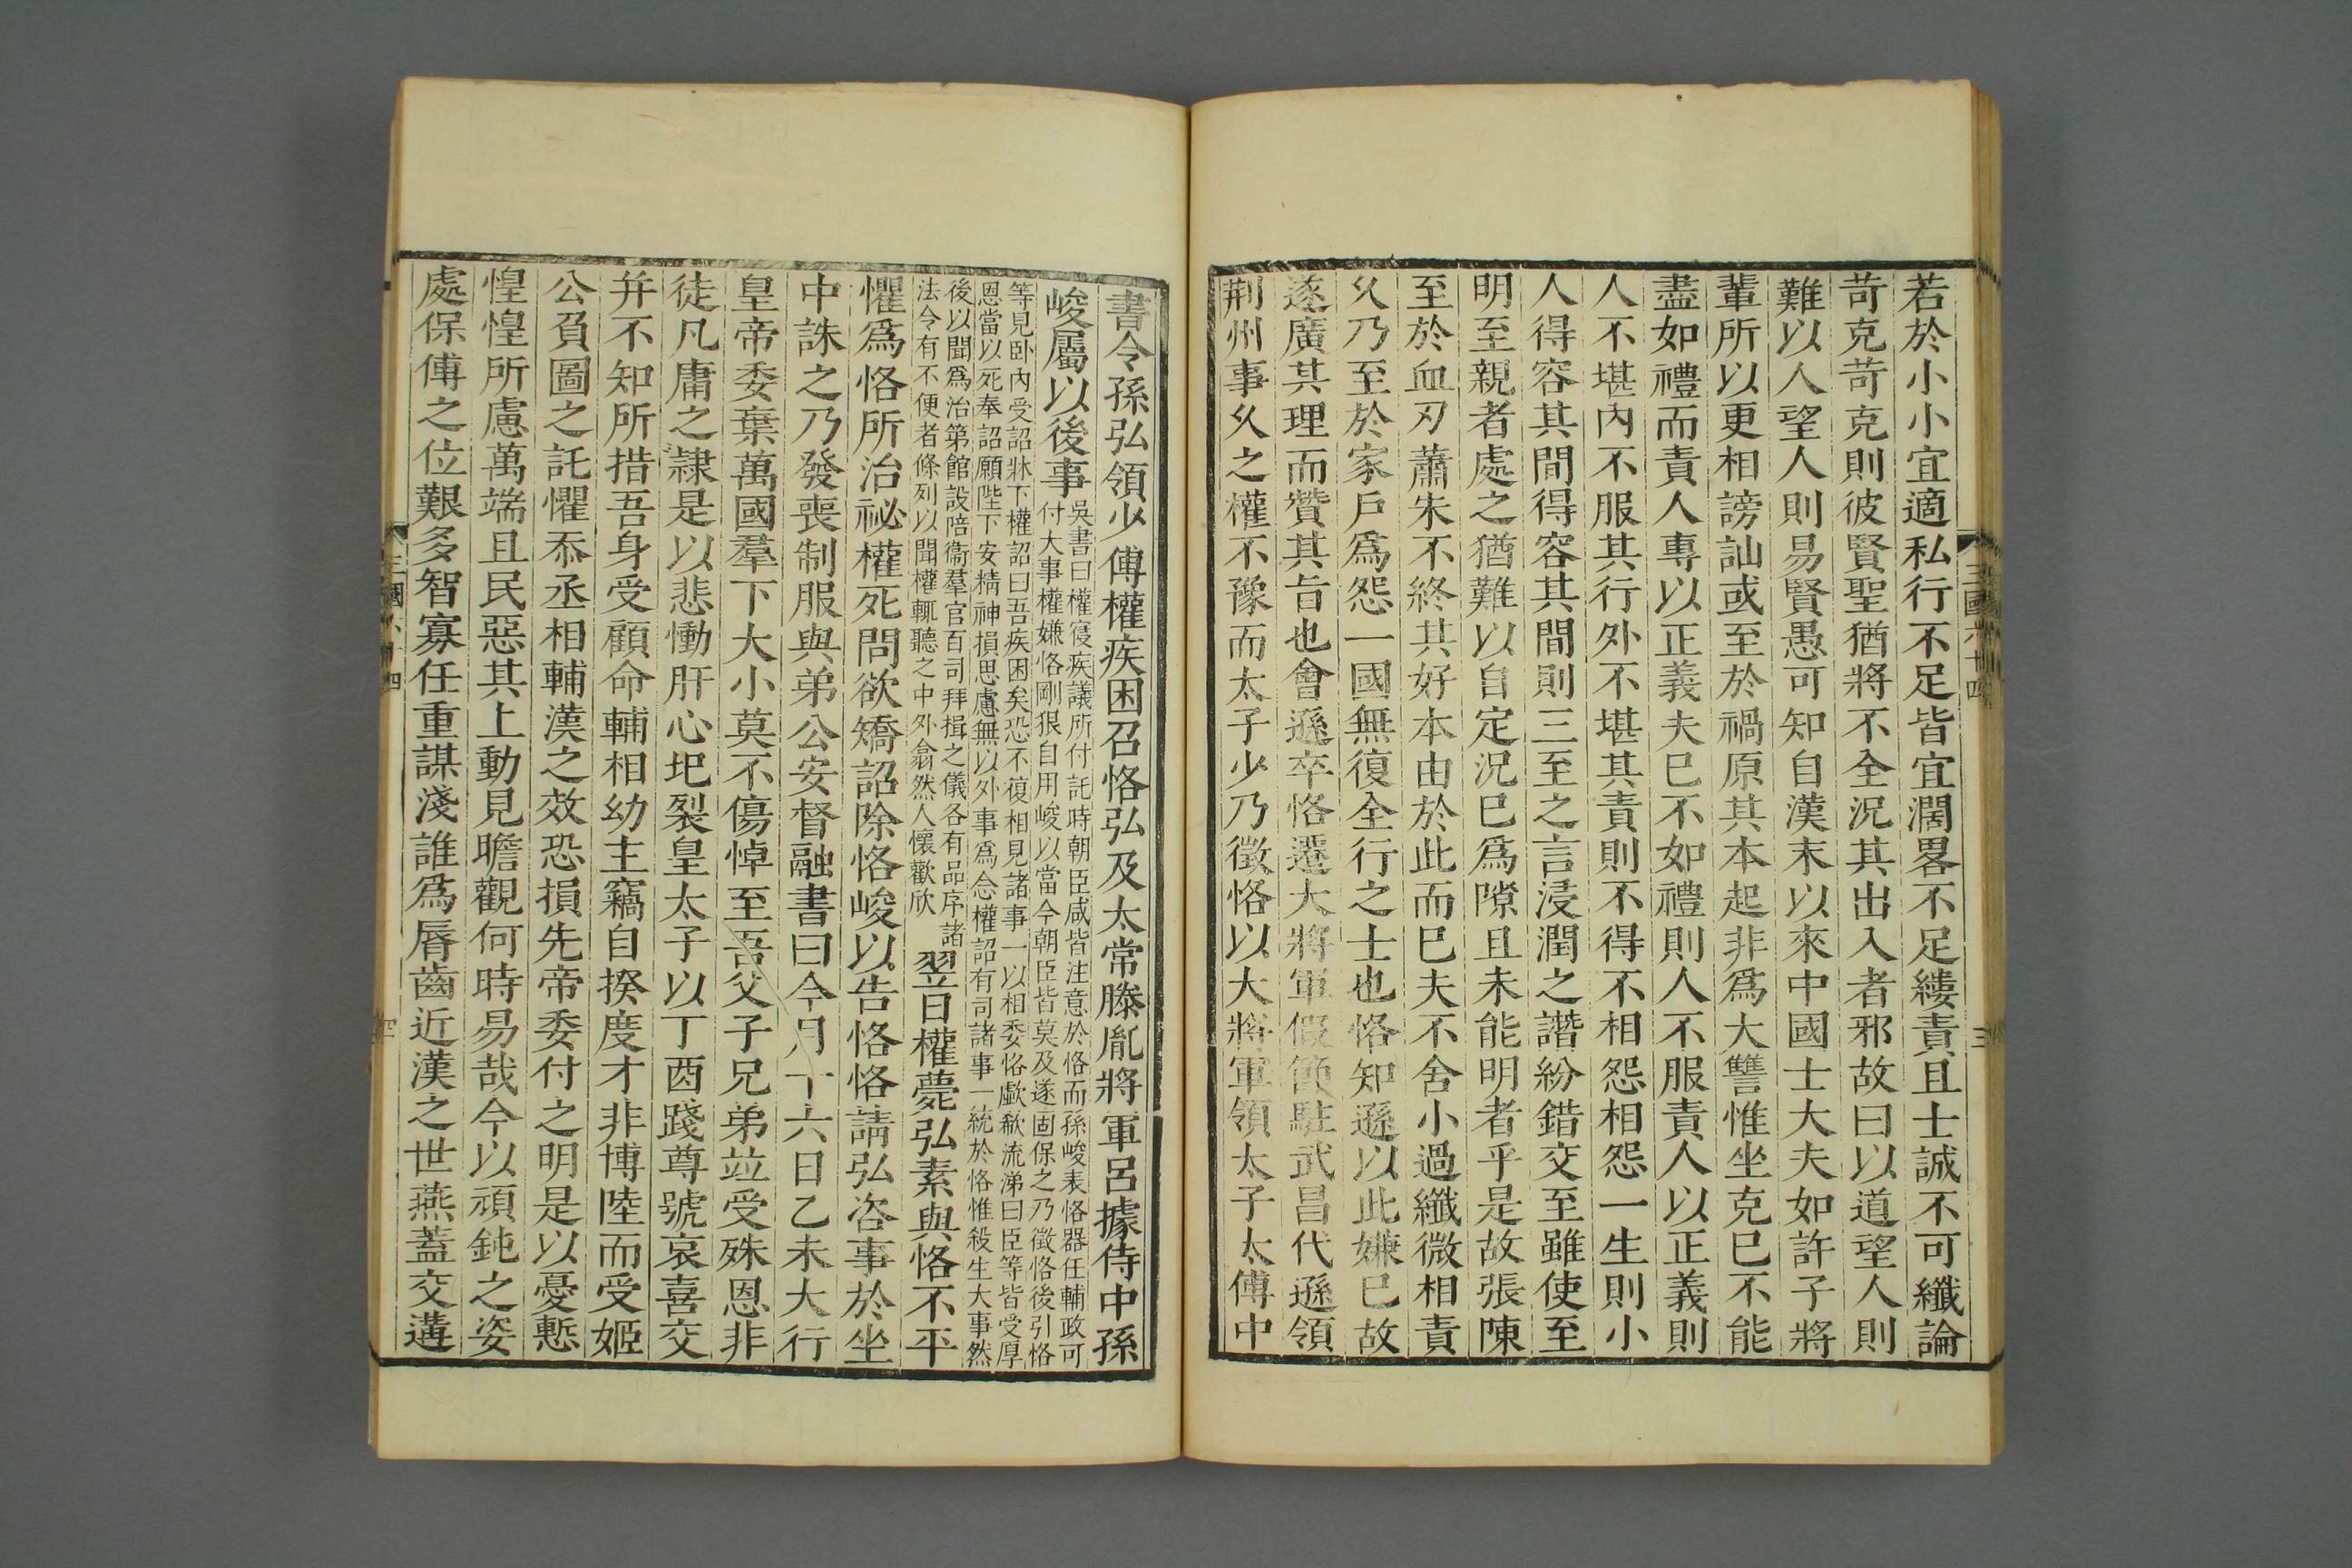 若於小小宜適私行不足皆宜濶畧不足縷責且士誠不可纖論
苛克苛克則彼賢聖猶將不全況其出入者邪故曰以道望人則
難以人望人則易賢愚可知自漢末以來中國士大夫如許子將
輩所以更相謗訕或至於禍原其本起非爲大讐惟坐克巳不能
盡如禮而責人專以正義夫巳不如禮則人不服責人以正義則
人不堪內不服其行外不堪其責則不得不相怨相怨一生則小
人得容其間得容其間則三至之言浸潤之譖紛錯交至雖使至
明至親者處之猶難以自定況巳爲隙且未能明者乎是故張陳
至於血刃蕭朱不終其好本由於此而巳夫不舍小過纖微相責
乆乃至於家戶爲怨一國無復全行之士也恪知遜以此嫌巳故
遂廣其理而贊其旨也會遜卒恪遷大將軍假節駐武昌代遜領
荆州事乆之權不豫而太子少乃徵恪以大將軍領太子太傅中
三國六十四
三
書令孫弘領少傅權疾困召恪弘及太常滕胤將軍呂據侍中孫
峻屬以後事
吳書曰權寑疾議所付託時朝臣咸皆注意於恪而孫峻表恪器任輔政可
付大事權嫌恪剛狠自用峻以當今朝臣皆莫及遂固保之乃徵恪後引恪
等見卧內受詔牀下權詔曰吾疾困矣恐不復相見諸事一以相委恪歔欷流涕曰臣等皆受厚
恩當以死奉詔願陛下安精神損思慮無以外事爲念權詔有司諸事一統於恪惟殺生大事然
後以聞爲治第館設陪衞羣官百司拜揖之儀各有品序諸
法令有不便者條列以聞權輒聽之中外翕然人懷歡欣
翌日權薨弘素與恪不平
懼爲恪所治祕權死問欲矯詔除恪峻以告恪恪請弘咨事於坐
中誅之乃發喪制服與弟公安督融書曰今月十六日乙未大行
皇帝委棄萬國羣下大小莫不傷悼至吾父子兄弟竝受殊恩非
徒凡庸之隷是以悲慟肝心圯裂皇太子以丁酉踐尊號哀喜交
并不知所措吾身受顧命輔相幼主竊自揆度才非博陸而受姬
公負圖之託懼忝丞相輔漢之效恐損先帝委付之明是以憂慙
惶惶所慮萬端且民惡其上動見瞻觀何時易哉今以頑鈍之姿
處保傅之位艱多智寡任重謀淺誰爲脣齒近漢之世燕蓋交遘
三國六十四
四